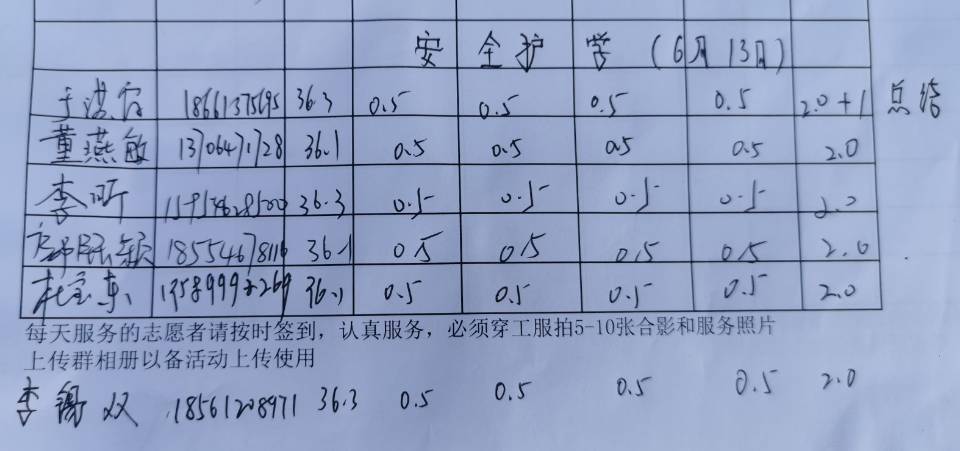 安全护学（6月13日）
于洪 18661375695 36.3 0.5 0.5 0.5 0.5 2.0+1 总结
董燕敏 13706471728 36.1 0.5 0.5 0.5 0.5 2.0
李昕 15954628500 36.3 0.5 0.5 0.5 0.5 2.0
18554678116 36.1 0.5 0.5 0.5 0.5 2.0
杜宝东 36.1 0.5 0.5 0.5 0.5 2.0
每天服务的志愿者请按时签到，认真服务，必须穿工服拍5-10张合影和服务照片
上传群相册以备活动上传使用
李 双 18561208971 36.3 0.5 0.5 0.5 0.5 2.0